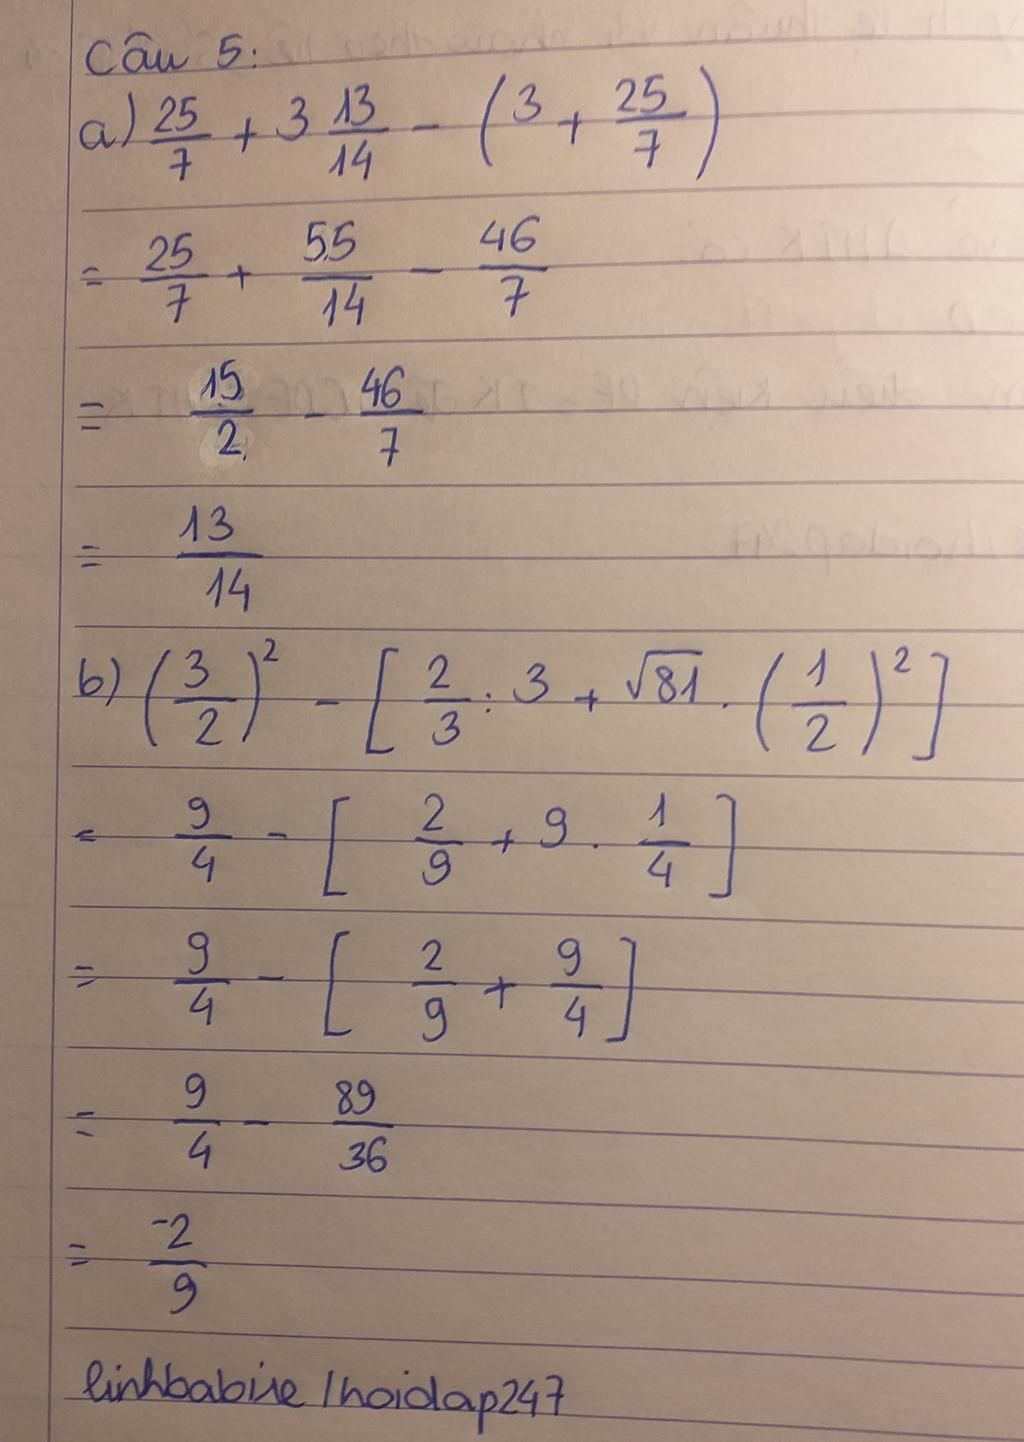 Câu 5:
a) 25/7 + 3 13/14 - (3 + 25/7)
= 25/7 + 55/14 - 46/7
= 15/2 - 46/7
= 13/14
b) (3/2)² - [2/3 : 3 + √81 . (1/2)²]
= 9/4 - [2/9 + 9 . 1/4]
= 9/4 - [2/9 + 9/4]
= 9/4 - 89/36
= -2/9
linhbabie /hoidap247